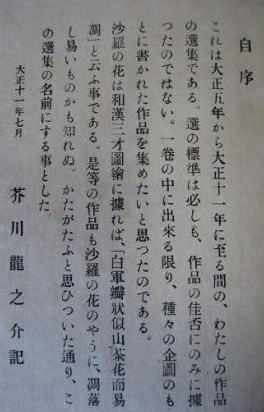 自序
これは大正五年から大正十一年に至る間の、わたしの作品
の選集である。選の標準は必しも、作品の佳否にのみに據
つたのではない。一巻の中に出來る限り、種々の企圖のも
とに書かれた作品を集めたいと思つたのである。
沙羅の花は和漢三才圖繪に據れば、「白單瓣狀似山茶花而易
凋」と云ふ事である。是等の作品も沙羅の花のやうに、凋落
し易いものかも知れぬ。かたがたふと思ひついた通り、こ
の選集の名前にする事とした。
大正十一年七月
芥川龍之介記